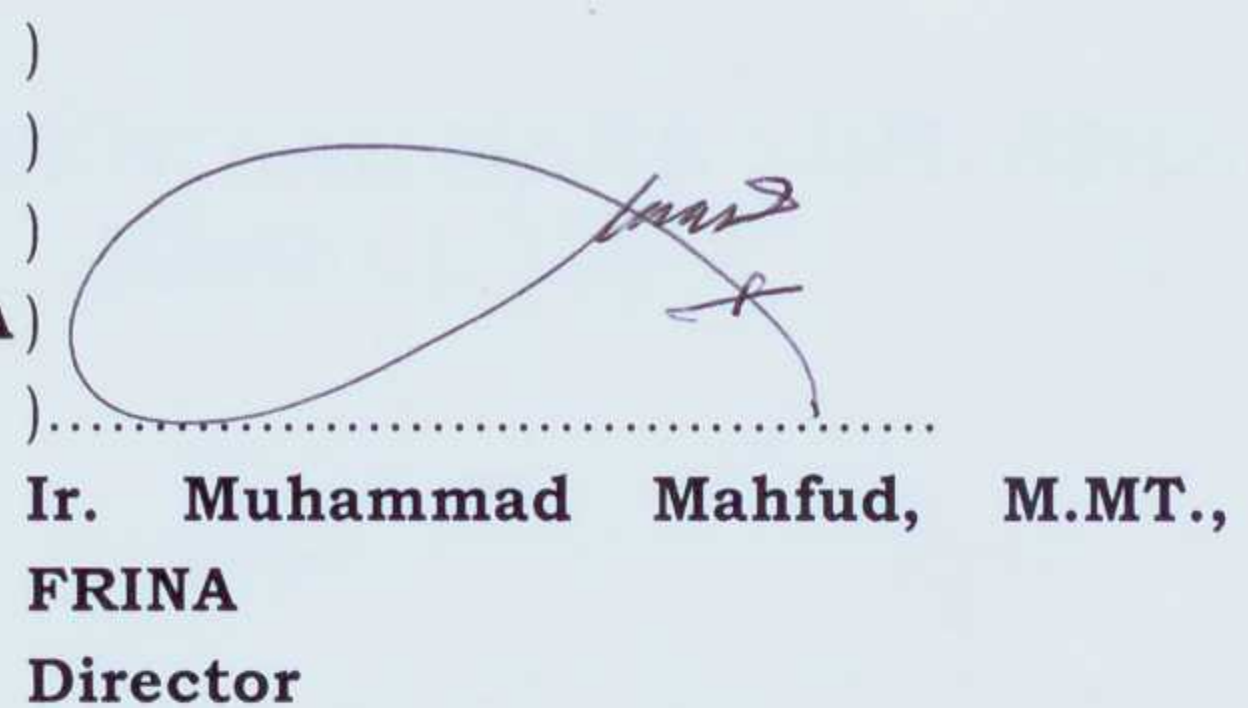 )
)
)
A)
)..........................................
Ir. Muhammad Mahfud, M.MT.,
FRINA
Director